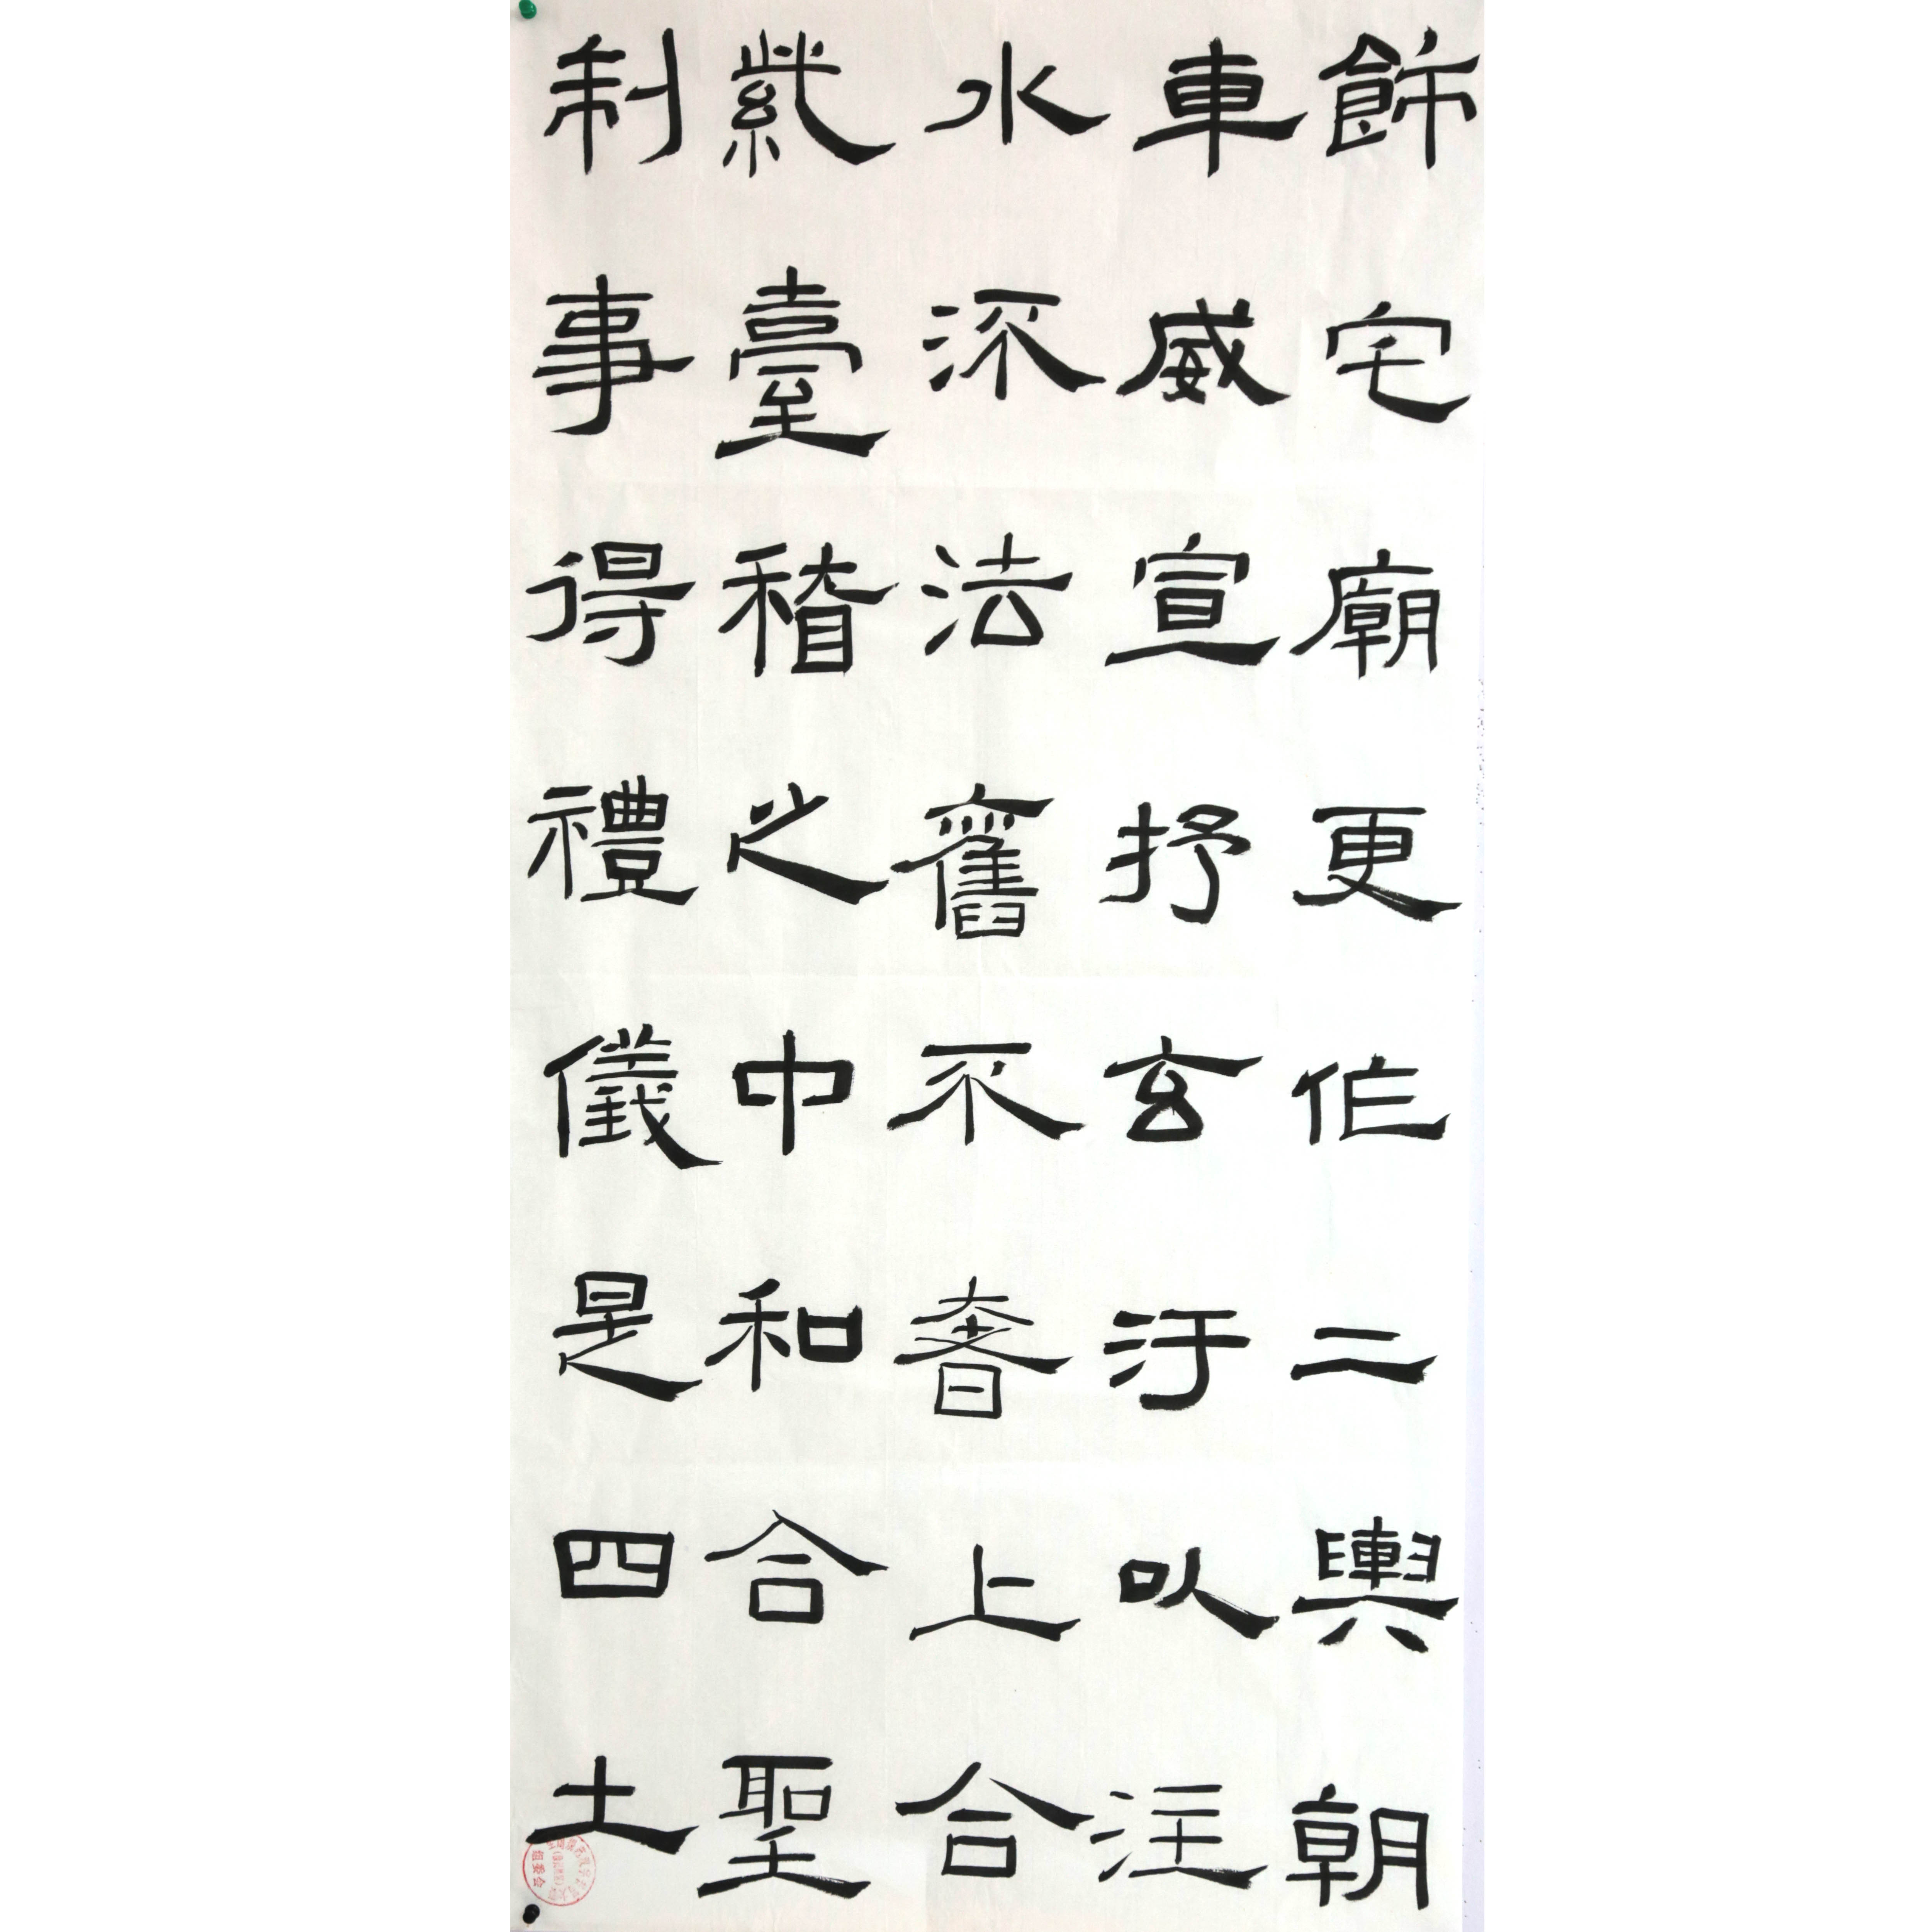 飾宅廟更作二輿朝
車威宣抒玄汙以注
水流法舊不奢上合
紫臺稽之中和合聖
制事得禮儀是四土
組委会